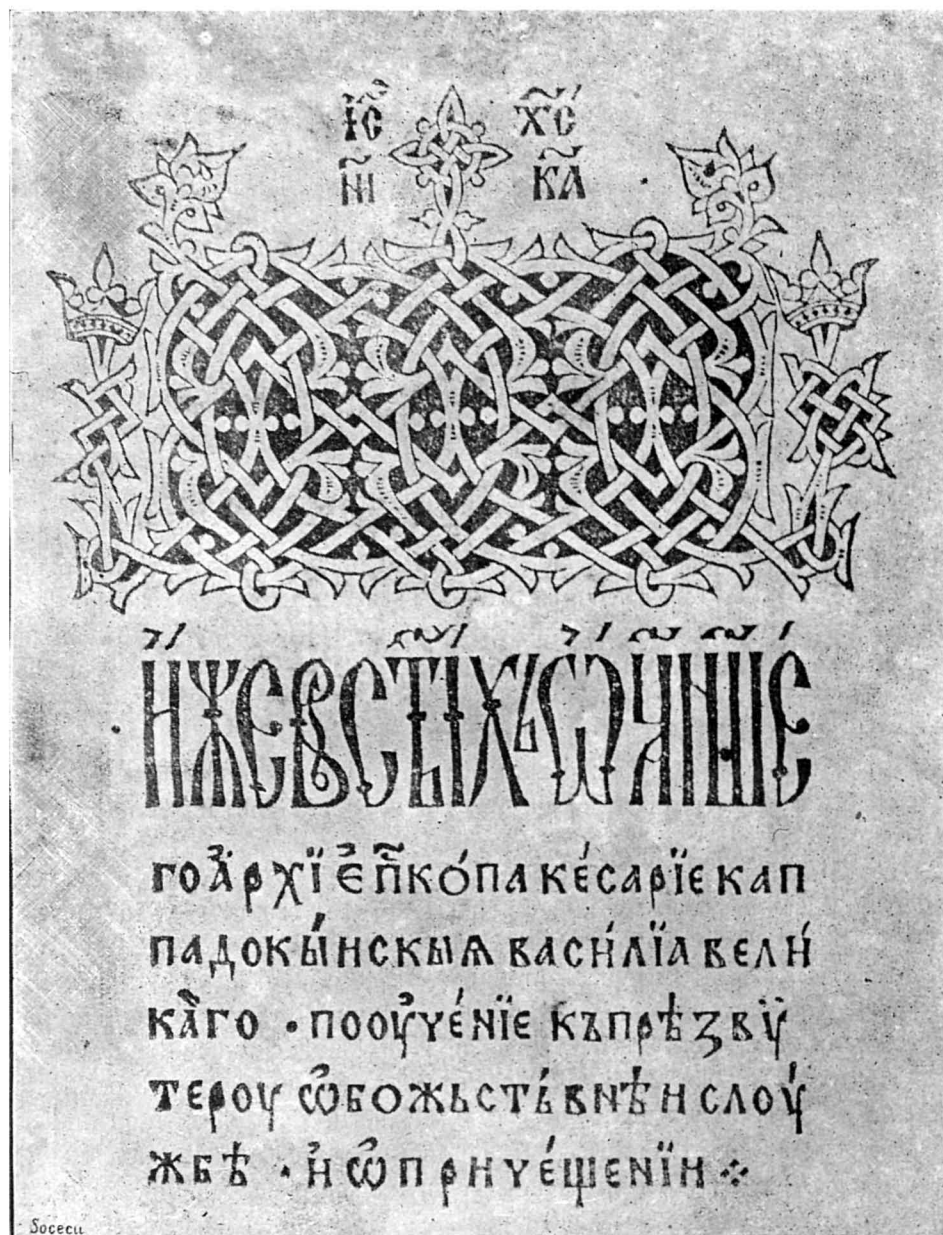 І҃С Х҃С
НИ КА
И҆ЖЕВСТ҃ЫХЬѠ҆Ц҃АНШ҃Е
гоа҆рхїе҆п҃копа ке́сарїе кап
падокы́нскыѧ васи́лїа вели́
ка҆го · пооу҆че́нїе къпрѣзвѵ̈
тероу ѡ҆божьсть́внѣи слоу́
жбѣ · и҆ ѡ҆причеще́нїи ⁘
Socecu